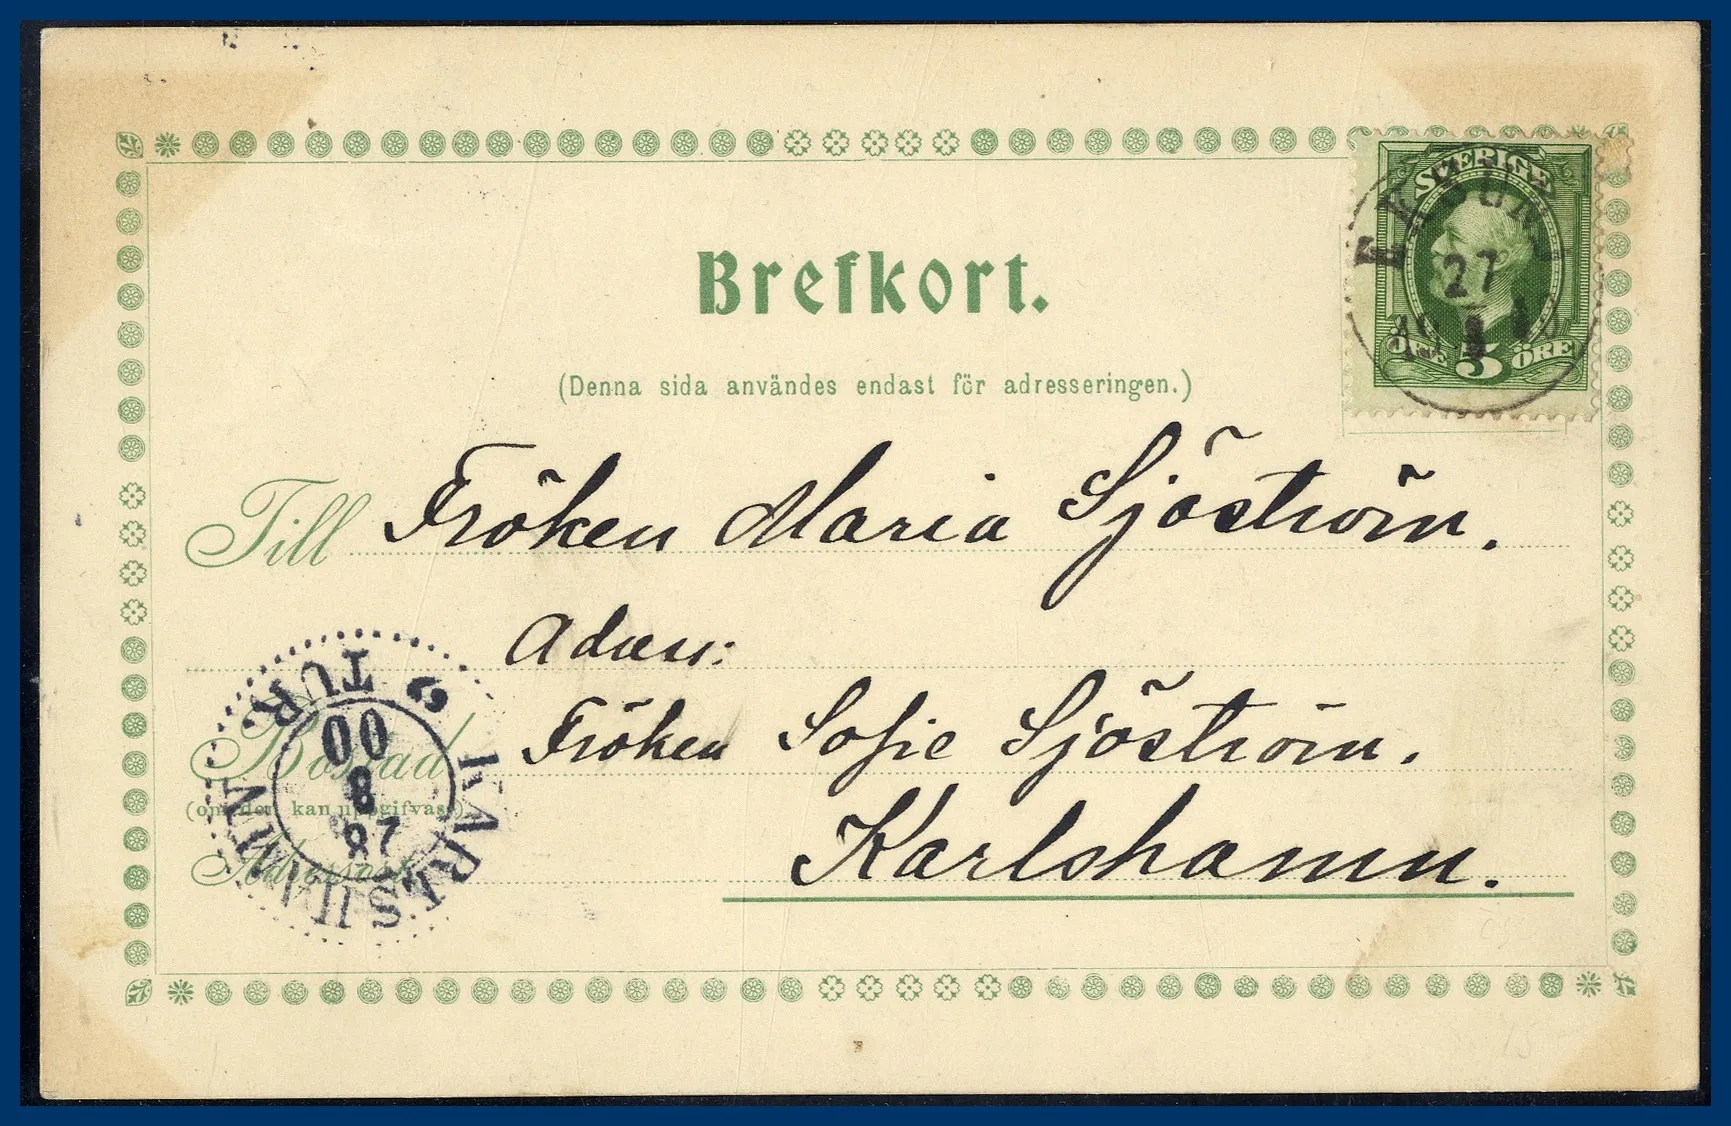 Brefkort.
(Denna sida användes endast för adresseringen.)
SVERIGE
27
8
5
ÖRE ÖRE
Till Fröken Maria Sjöström.
Adress:
Bostad Fröken Sofie Sjöström.
(om den kan uppgifvas)
Karlshamn.
KARLSHAMN
2 TUR.
28
8
00